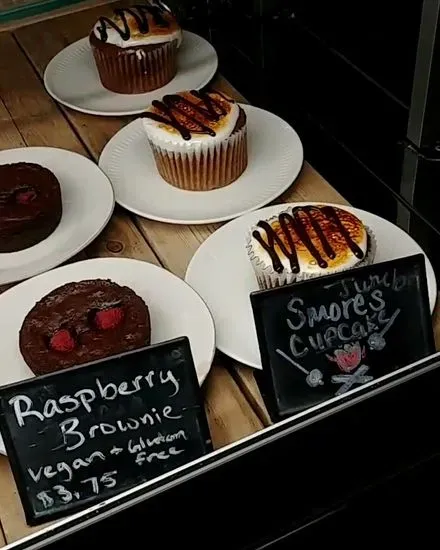 Raspberry
Brownie
vegan + Gluten
free
$3.75
Jumbo
Smores
Cupcake